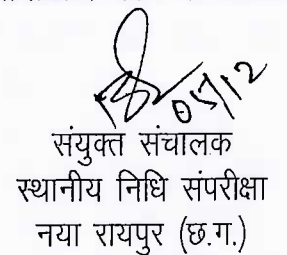 05/12
संयुक्त संचालक
स्थानीय निधि संपरीक्षा
नया रायपुर (छ.ग.)